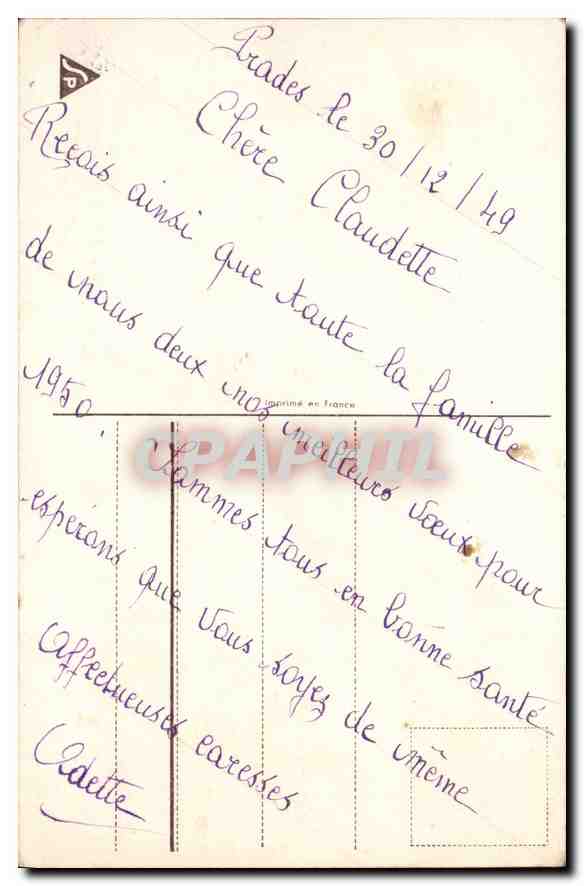 Prades le 30/12/49
Chère Claudette
Reçois ainsi que toute la famille
de nous deux nos meilleurs vœux pour
1950.
Sommes tous en bonne santé
espérons que vous soyez de même
Affectueuses caresses
Odette
Imprimé en France
CPAPHIL
SP